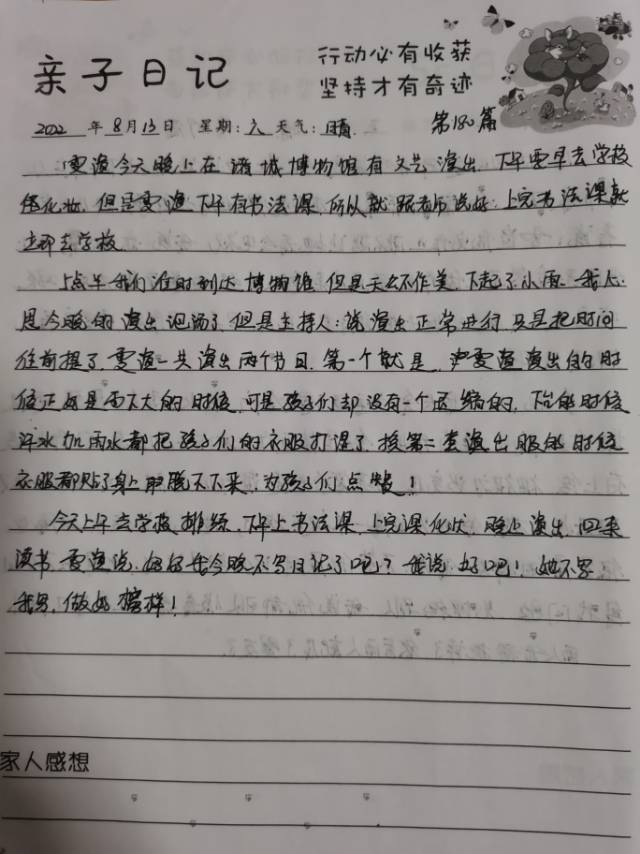 亲子日记
行动必有收获
坚持才有奇迹
2022年8月13日 星期:六 天气:晴 第180篇
雯渲今天晚上在诸城博物馆有文艺演出,下午要早去学校
化妆,但是雯渲下午有书法课,所以就跟老师说好:上完书法课就
立即去学校
1点半我们准时到达博物馆,但是天公不作美,下起了小雨,我心
思今晚的演出泡汤了,但是主持人:说演出正常进行,只是把时间
往前提了,雯渲一共演出两个节目,第一个就是,雯渲演出的时
候正好是雨不大的时候,可是孩子们却没有一个退缩的,下台的时候
汗水加雨水都把孩子们的衣服打湿了,换第二套演出服的时候
衣服都贴了身上脱不下来,为孩子们点赞!
今天上午去学校排练,下午上书法课,上完课化妆,晚上演出,回来
读书,雯渲说:妈妈我今晚不写日记了吧!?我说:好吧!她不写
我写,做好榜样!
家人感想